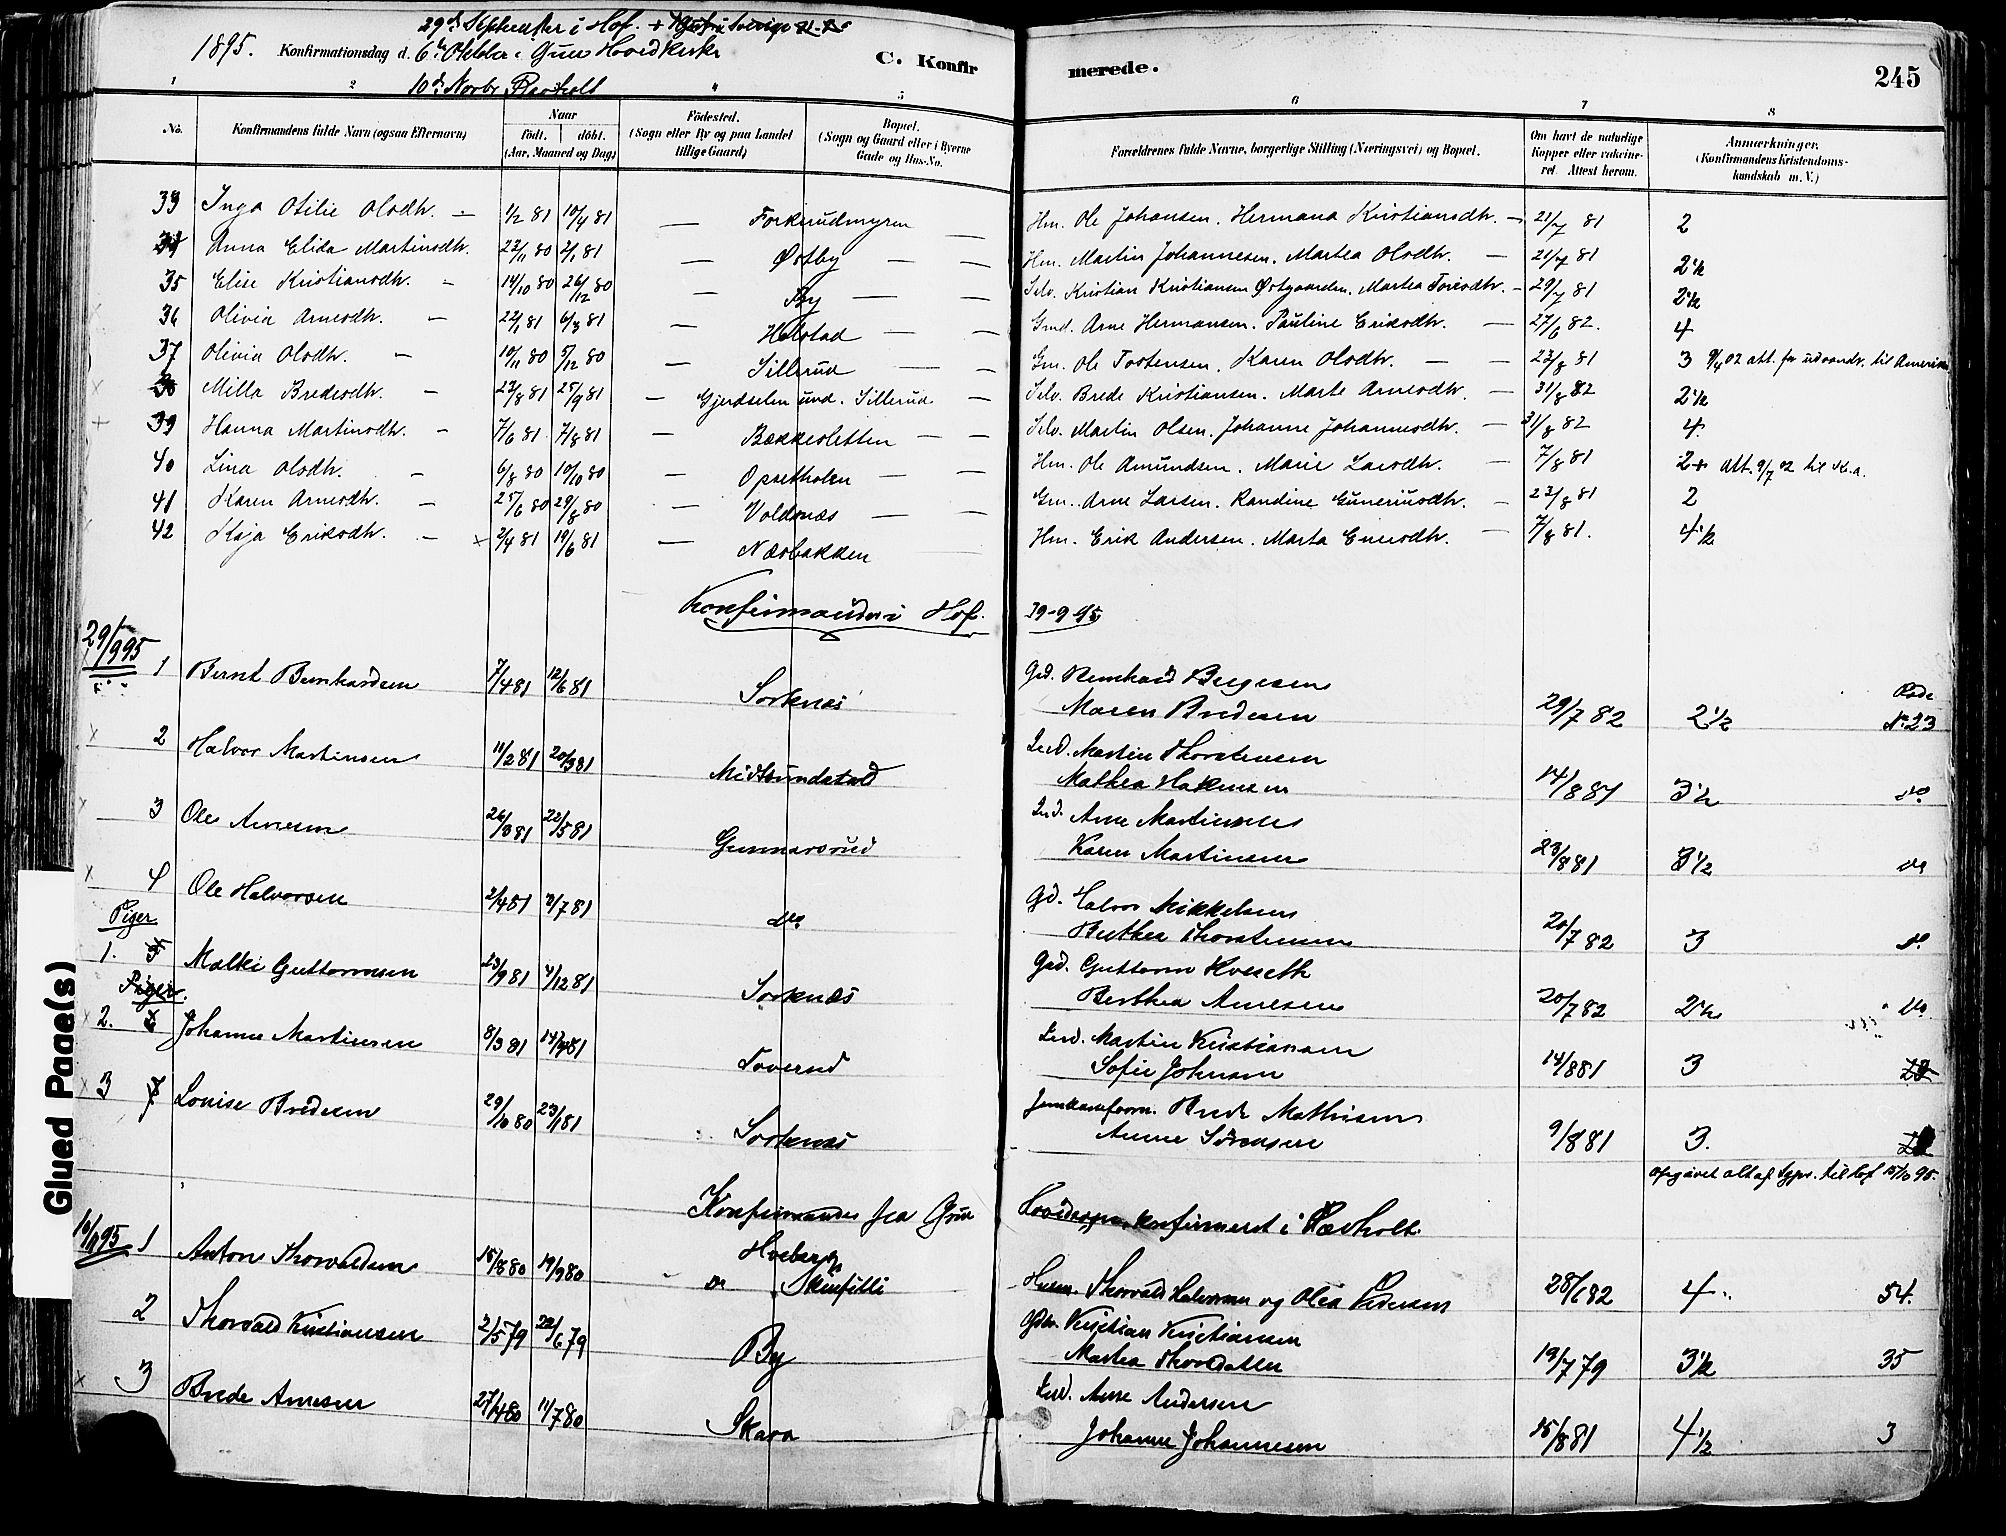 29de September i Hof.
1895. Konfirmationsdag d. 6te Oktober i Grue Hovedkirke
10de Novbr.
C. Konfirmerede.
245
1 2 4 5 6 7 8
No.
Konfirmandens fulde Navn (ogsaa Efternavn)
Naar
født. døbt.
(Aar, Maaned og Dag)
Fødested.
(Sogn eller By og paa Landet tillige Gaard)
Bopæl.
(Sogn og Gaard eller i Byerne Gade og Hus-No.
Forældrenes fulde Navne, borgerlige Stilling (Næringsvei) og Bopæl.
Om havt de naturlige Kopper eller vakcineret. Attest herom.
Anmærkninger.
(Konfirmandens Kristendomskundskab m. V.)
33 Inga Otilie Olsdtr. — 1/2 81 10/4 81 — Forkerudmyren — Hm. Ole Johansen. Hermana Kristiansdtr. — 21/7 81 2
34 Anna Elida Martinsdtr. 22/11 80 2/1 81 — Østby — — Hm. Martin Johannesen. Martea Olsdtr. — 21/7 81 2 1/2
35 Elise Kristiansdtr. - 14/10 80 26/12 80 — By — — Selv. Kristian Kristiansen Østgaarden. Martea Toresdtr. - 29/7 81 2 1/2
36 Olivia Arnesdtr. - 22/1 81 6/3 81 — Helstad — — Gmd. Arne Hermansen. Pauline Eriksdtr. — 27/6 82. 4
37 Olivia Olsdtr. - 10/11 80 5/12 80 — Sillerud — — Gm. Ole Tostensen. Karen Olsdtr. — — 23/8 81 3 9/4 02 att. for udvandr. til Amerika
38 Milla Bredesdtr. - 23/8 81 25/9 81 — Gjerdselen und. Sillerud — Selv. Brede Kristiansen. Marte Arnesdtr. — 31/8 82 2 1/2
39 Hanna Martinsdtr. - 7/6 81 7/8 81 — Bækkesletten — — Selv. Martin Olsen. Johanne Johannesdtr. — 31/8 82 4.
40 Lina Olsdtr. - 6/8 80 10/10 80 — Opsetholen — — Hm. Ole Amundsen. Marie Larsdtr. — 7/8 81 2+ Att. 9/7 02 til
41 Karen Arnesdtr. - 25/6 80 29/8 80 — Voldsnæs — — Gm. Arne Larsen. Randine Guneriusdtr. — 23/8 81 2
42 Kaja Eriksdtr. - × 2/4 81 19/6 81 — Næsbakken Hm. Erik Andersen. Marta Enersdtr. — 7/8 81. 4 1/2
Konfirmander i Hof. 29-9-95
29/9 95 1 Bernt Bernhardsen 7/4 81 12/6 81 Sorknæs Gd. Bernhard Bergesen
Maren Bredesen 29/7 82 2 1/2 Rode No 23
2 Halvor Martinsen 11/2 81 20/3 81 Midtsundstad Ind. Martin Thorstensen
Mathea Hakensen 14/8 81 3 1/2 do
3 Ole Arnesen 26/3 81 22/5 81 Gunnarsrud Ind. Arne Martinsen
Karen Martinsen 23/8 81 3 1/2 do
4 Ole Halvorsen 2/4 81 3/7 81 do Gd. Halvor Mikkelsen
Berthea Thorstensen 20/7 82 3 do
Piger
1. 5 Malki Guttormsen 23/9 81 4/12 81 Sorknæs Gd. Guttorm Kveseth
Berthea Arnesen 20/7 82 2 1/2 do
Piger.
2. 6 Johanne Martinsen 8/3 81 Toverud Ind. Martin Kristiansen
Sofie Johnsen 14/8 81 3 23
3 7 Louise Bredesen 29/10 80 23/1 81 Sorknæs Brede Mathisen
Anne Sørensen 9/8 81 3.
Opgavet alt af til Hof 15/10 95.
Konfirmander fra Grue Hovedsogn konfirmeret i
10/11 95 1 Anton Thorvaldsen 15/8 80 19/9 80 Hveberg
do Skinfilli Husm. Thorvald Halvorsen og Olea Pedersen 28/6 82 4 54.
2 Thorvald Kristiansen 2/5 79 22/6 79 By Kristian Kristiansen
Martea 19/7 79 3 1/2 35
3 Brede Arnesen 27/4 80 11/7 80 Skara Ind. Arne Andersen
Johanne Johannesen 15/8 81 4 1/2 3
Glued Page(s)